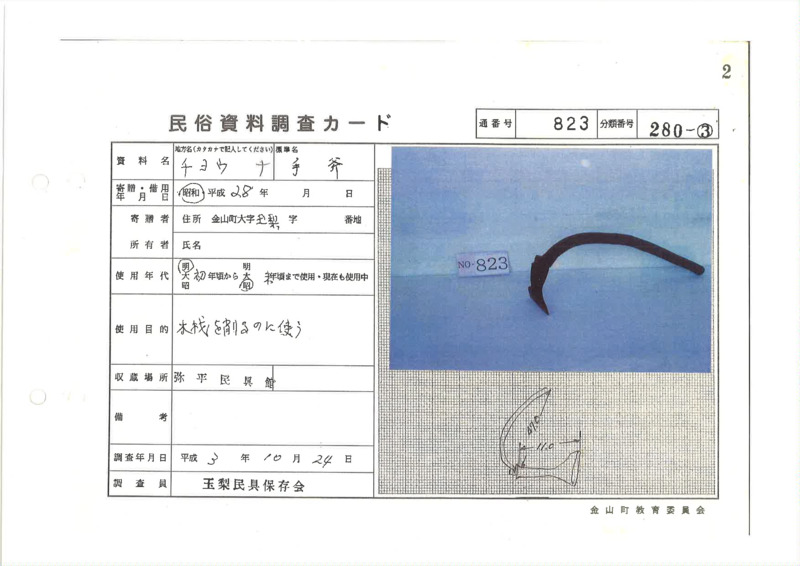 2
民俗資料調査カード
通番号 823 分類番号 280-③
資料名 地方名(カタカナで記入してください) チヨウナ 標準名 手斧
寄贈・借用年月日 昭和 平成 28年 月 日
寄贈者 住所 金山町大字玉梨字 番地
所有者 氏名
使用年代 明大昭 初年頃から 明大昭 初年頃まで使用・現在も使用中
使用目的 木材を削るのに使う
収蔵場所 弥平民具館
備考
調査年月日 平成 3年 10月 24日
調査員 玉梨民具保存会
NO-823
11.0
金山町教育委員会